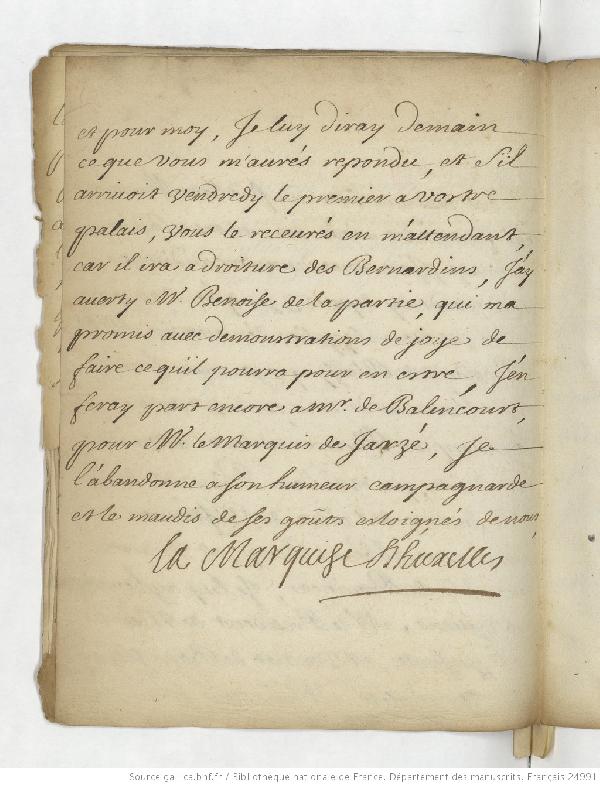 et pour moy, Je luy diray demain
ce que vous m'aurés repondu, et s'il
arrivoit vendredy le premier a vostre
palais, vous le receurés en m'attendant,
car il ira a droiture des Bernardins, J'ay
averty Mr. Benoise de la partie, qui ma
promis avec demonstrations de joye de
faire ce quil pourra pour en estre, J'en
feray part encore a mr. de Balincourt,
pour Mr. le Marquis de Jarzé, Je
l'abandonne a son humeur campagnarde
et le maudis de ses goûts esloignés de nous
la Marquise d'huxelles
Source gallica.bnf.fr / Bibliothèque nationale de France. Département des manuscrits. Français 24991